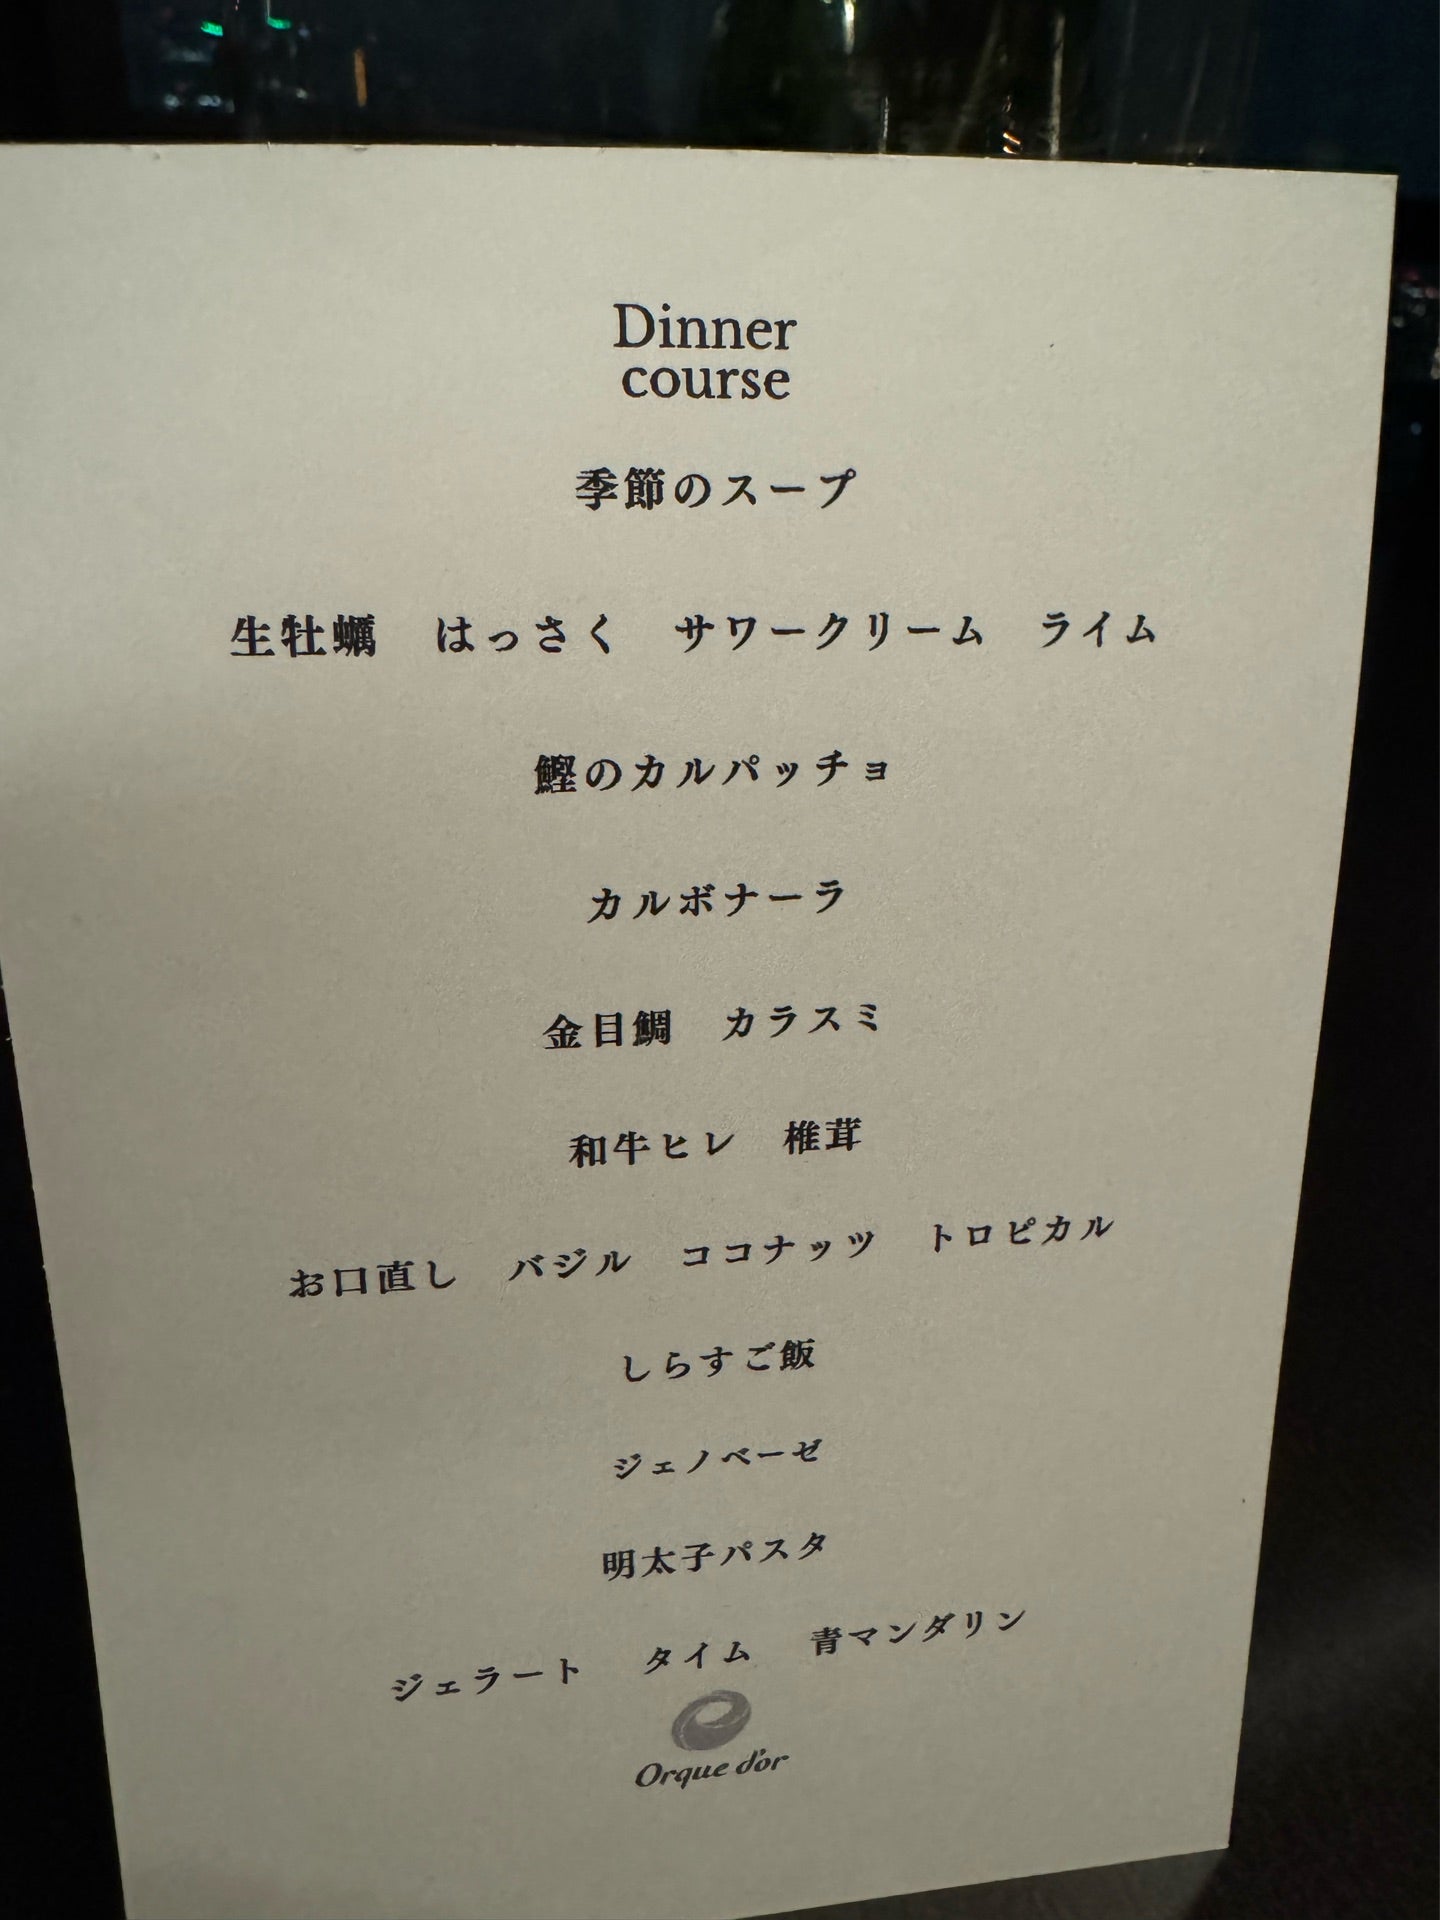 Dinner
course
季節のスープ
生牡蠣　はっさく　サワークリーム　ライム
鰹のカルパッチョ
カルボナーラ
金目鯛　カラスミ
和牛ヒレ　椎茸
お口直し　バジル　ココナッツ　トロピカル
しらすご飯
ジェノベーゼ
明太子パスタ
ジェラート　タイム　青マンダリン
Orque d'or